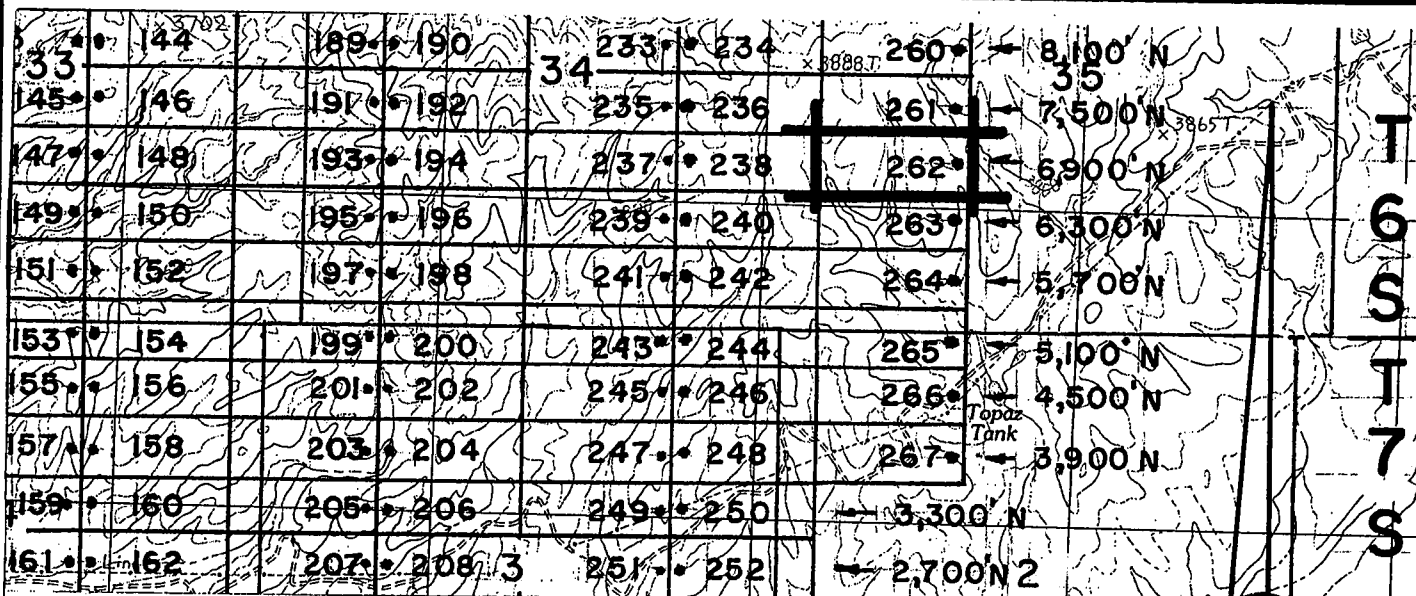 3702
144 189 190 233 234 260 8,100' N
33 34 × 3888T 35
145 146 191 192 235 236 261 7,500' N
× 3865T
147 148 193 194 237 238 262 6,900' N
149 150 195 196 239 240 263 6,300' N
151 152 197 198 241 242 264 5,700' N
T6S
153 154 199 200 243 244 265 5,100' N
155 156 201 202 245 246 266 4,500' N
Topaz
Tank
157 158 203 204 247 248 267 3,900' N
159 160 205 206 249 250 3,300' N
161 162 207 208 3 251 252 2,700' N 2
T7S